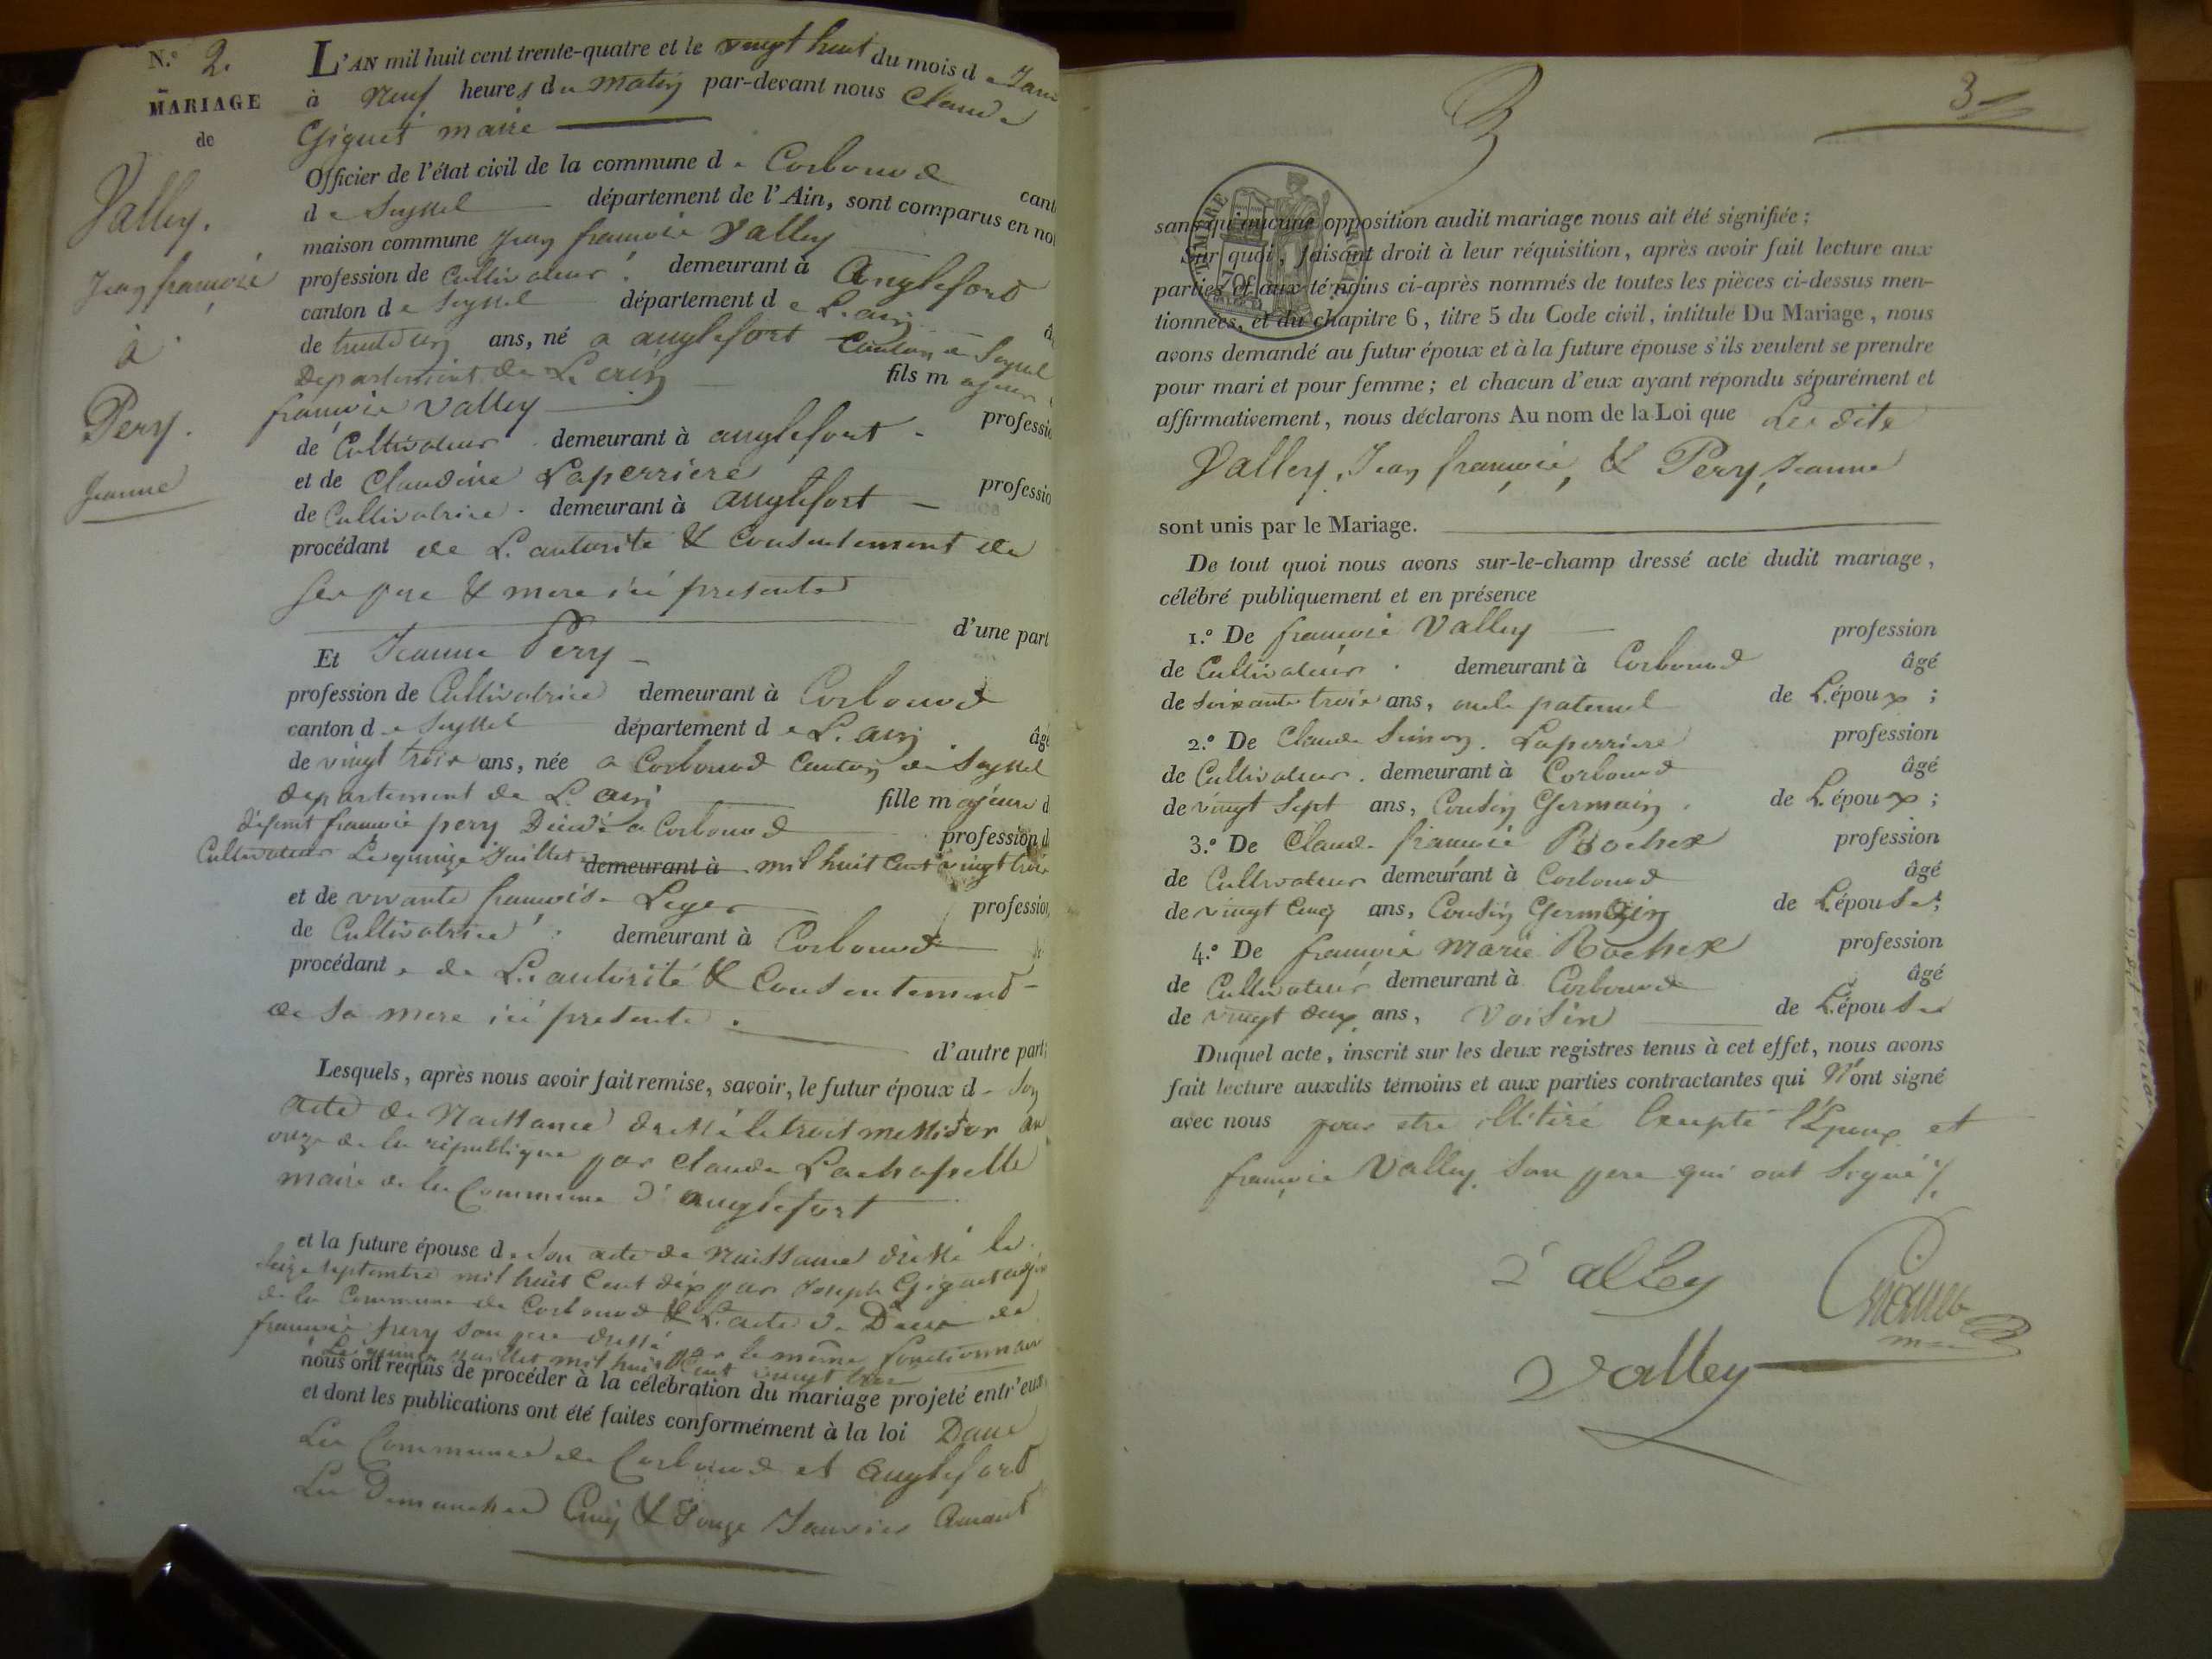 N.° 2.
MARIAGE
de
Valley.
Jean françois
à
Pery.
Jeanne
L'AN mil huit cent trente-quatre et le vingt huit du mois de Janv
à Neuf heures du matin par-devant nous Claude
Giguet maire
Officier de l'état civil de la commune de Corbonod cant
de Seyssel département de l'Ain, sont comparus en no
maison commune Jean françois Valley
profession de Cultivateur. demeurant à Anglefort
canton de Seyssel département de L'ain
de trente un ans, né a anglefort Canton de Seyssel
Departement de L'ain fils majeur
françois Valley professio
de Cultivateur demeurant à anglefort
et de Claudine Laperriere professio
de Cultivatrice. demeurant à anglefort
procédant de L'autorité & Consentement de
ses pere & mere ici presents
d'une part
Et Jeanne Pery
profession de Cultivatrice demeurant à Corbonod
canton de Seyssel département de L'ain âgé
de vingt trois ans, née a Corbonod Canton de Seyssel
departement de L'ain fille majeure d
défunt françois pery Décédé a Corbonod profession d
Cultivateur Le quinze Juillet demeurant à mil huit Cent vingt trois
et de vivante françoise Leger profession
de Cultivatrice. demeurant à Corbonod
procédant de L'autorité & Consentement
de sa mere ici presente.
d'autre part;
Lesquels, après nous avoir fait remise, savoir, le futur époux de son
acte de Naissance dressé le trois messidor an
onze de la république par Claude Lachapelle
maire de la Commune d'anglefort
et la future épouse de son acte de Naissance dressé le
seize septembre mil huit Cent dix par Joseph Giguet adj
de la Commune de Corbonod & L'acte de Deces de
françois pery son pere dressé par le même fonctionnaire
Le quinze Juillet mil huit Cent vingt trois
nous ont requis de procéder à la célébration du mariage projeté entr'eux,
et dont les publications ont été faites conformément à la loi Dans
Les Communes de Corbonod et Anglefort
Les Dimanches Cinq & Douze Janvier Courant
3
3
TIMBRE ROYAL
sans qu'aucune opposition audit mariage nous ait été signifiée;
Sur quoi, faisant droit à leur réquisition, après avoir fait lecture aux
parties et aux témoins ci-après nommés de toutes les pièces ci-dessus men-
tionnées, et du chapitre 6, titre 5 du Code civil, intitulé Du Mariage, nous
avons demandé au futur époux et à la future épouse s'ils veulent se prendre
pour mari et pour femme; et chacun d'eux ayant répondu séparément et
affirmativement, nous déclarons Au nom de la Loi que Les dits
Valley, Jean françois, & Pery, Jeanne
sont unis par le Mariage.
De tout quoi nous avons sur-le-champ dressé acte dudit mariage,
célébré publiquement et en présence
1.° De françois Valley profession
de Cultivateur. demeurant à Corbonod âgé
de soixante trois ans, oncle paternel de L'époux;
2.° De Claude Simon. Laperriere profession
de Cultivateur. demeurant à Corbonod âgé
de vingt Sept ans, Cousin Germain. de L'époux;
3.° De Claude françois Rochex profession
de Cultivateur demeurant à Corbonod âgé
de vingt Cinq ans, Cousin Germain de L'épouse;
4.° De françois Marie Rochex profession
de Cultivateur demeurant à Corbonod âgé
de vingt deux ans, Voisin de L'épouse
Duquel acte, inscrit sur les deux registres tenus à cet effet, nous avons
fait lecture auxdits témoins et aux parties contractantes qui N'ont signé
avec nous pour etre illitéré Excepté l'Epoux et
françois Valley son pere qui ont signé
Valley
Giguet
Valley